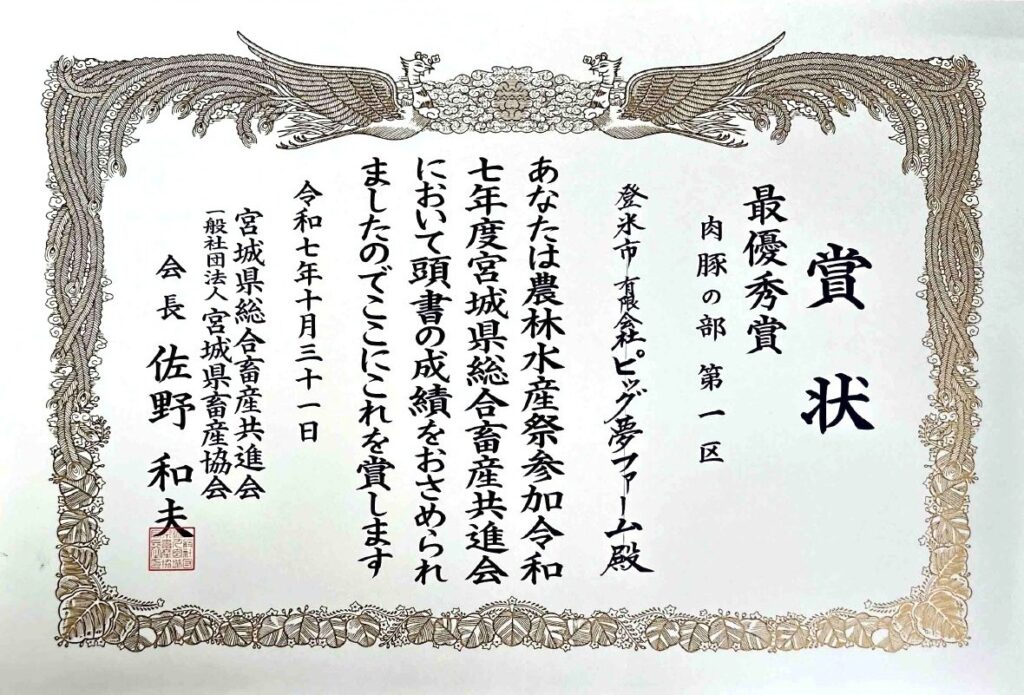 賞状
最優秀賞
肉豚の部 第一区
登米市 有限会社ピッグ夢ファーム殿
あなたは農林水産祭参加令和
七年度宮城県総合畜産共進会
において頭書の成績をおさめられ
ましたのでここにこれを賞します
令和七年十月三十一日
宮城県総合畜産共進会
一般社団法人 宮城県畜産協会
会長 佐野 和夫